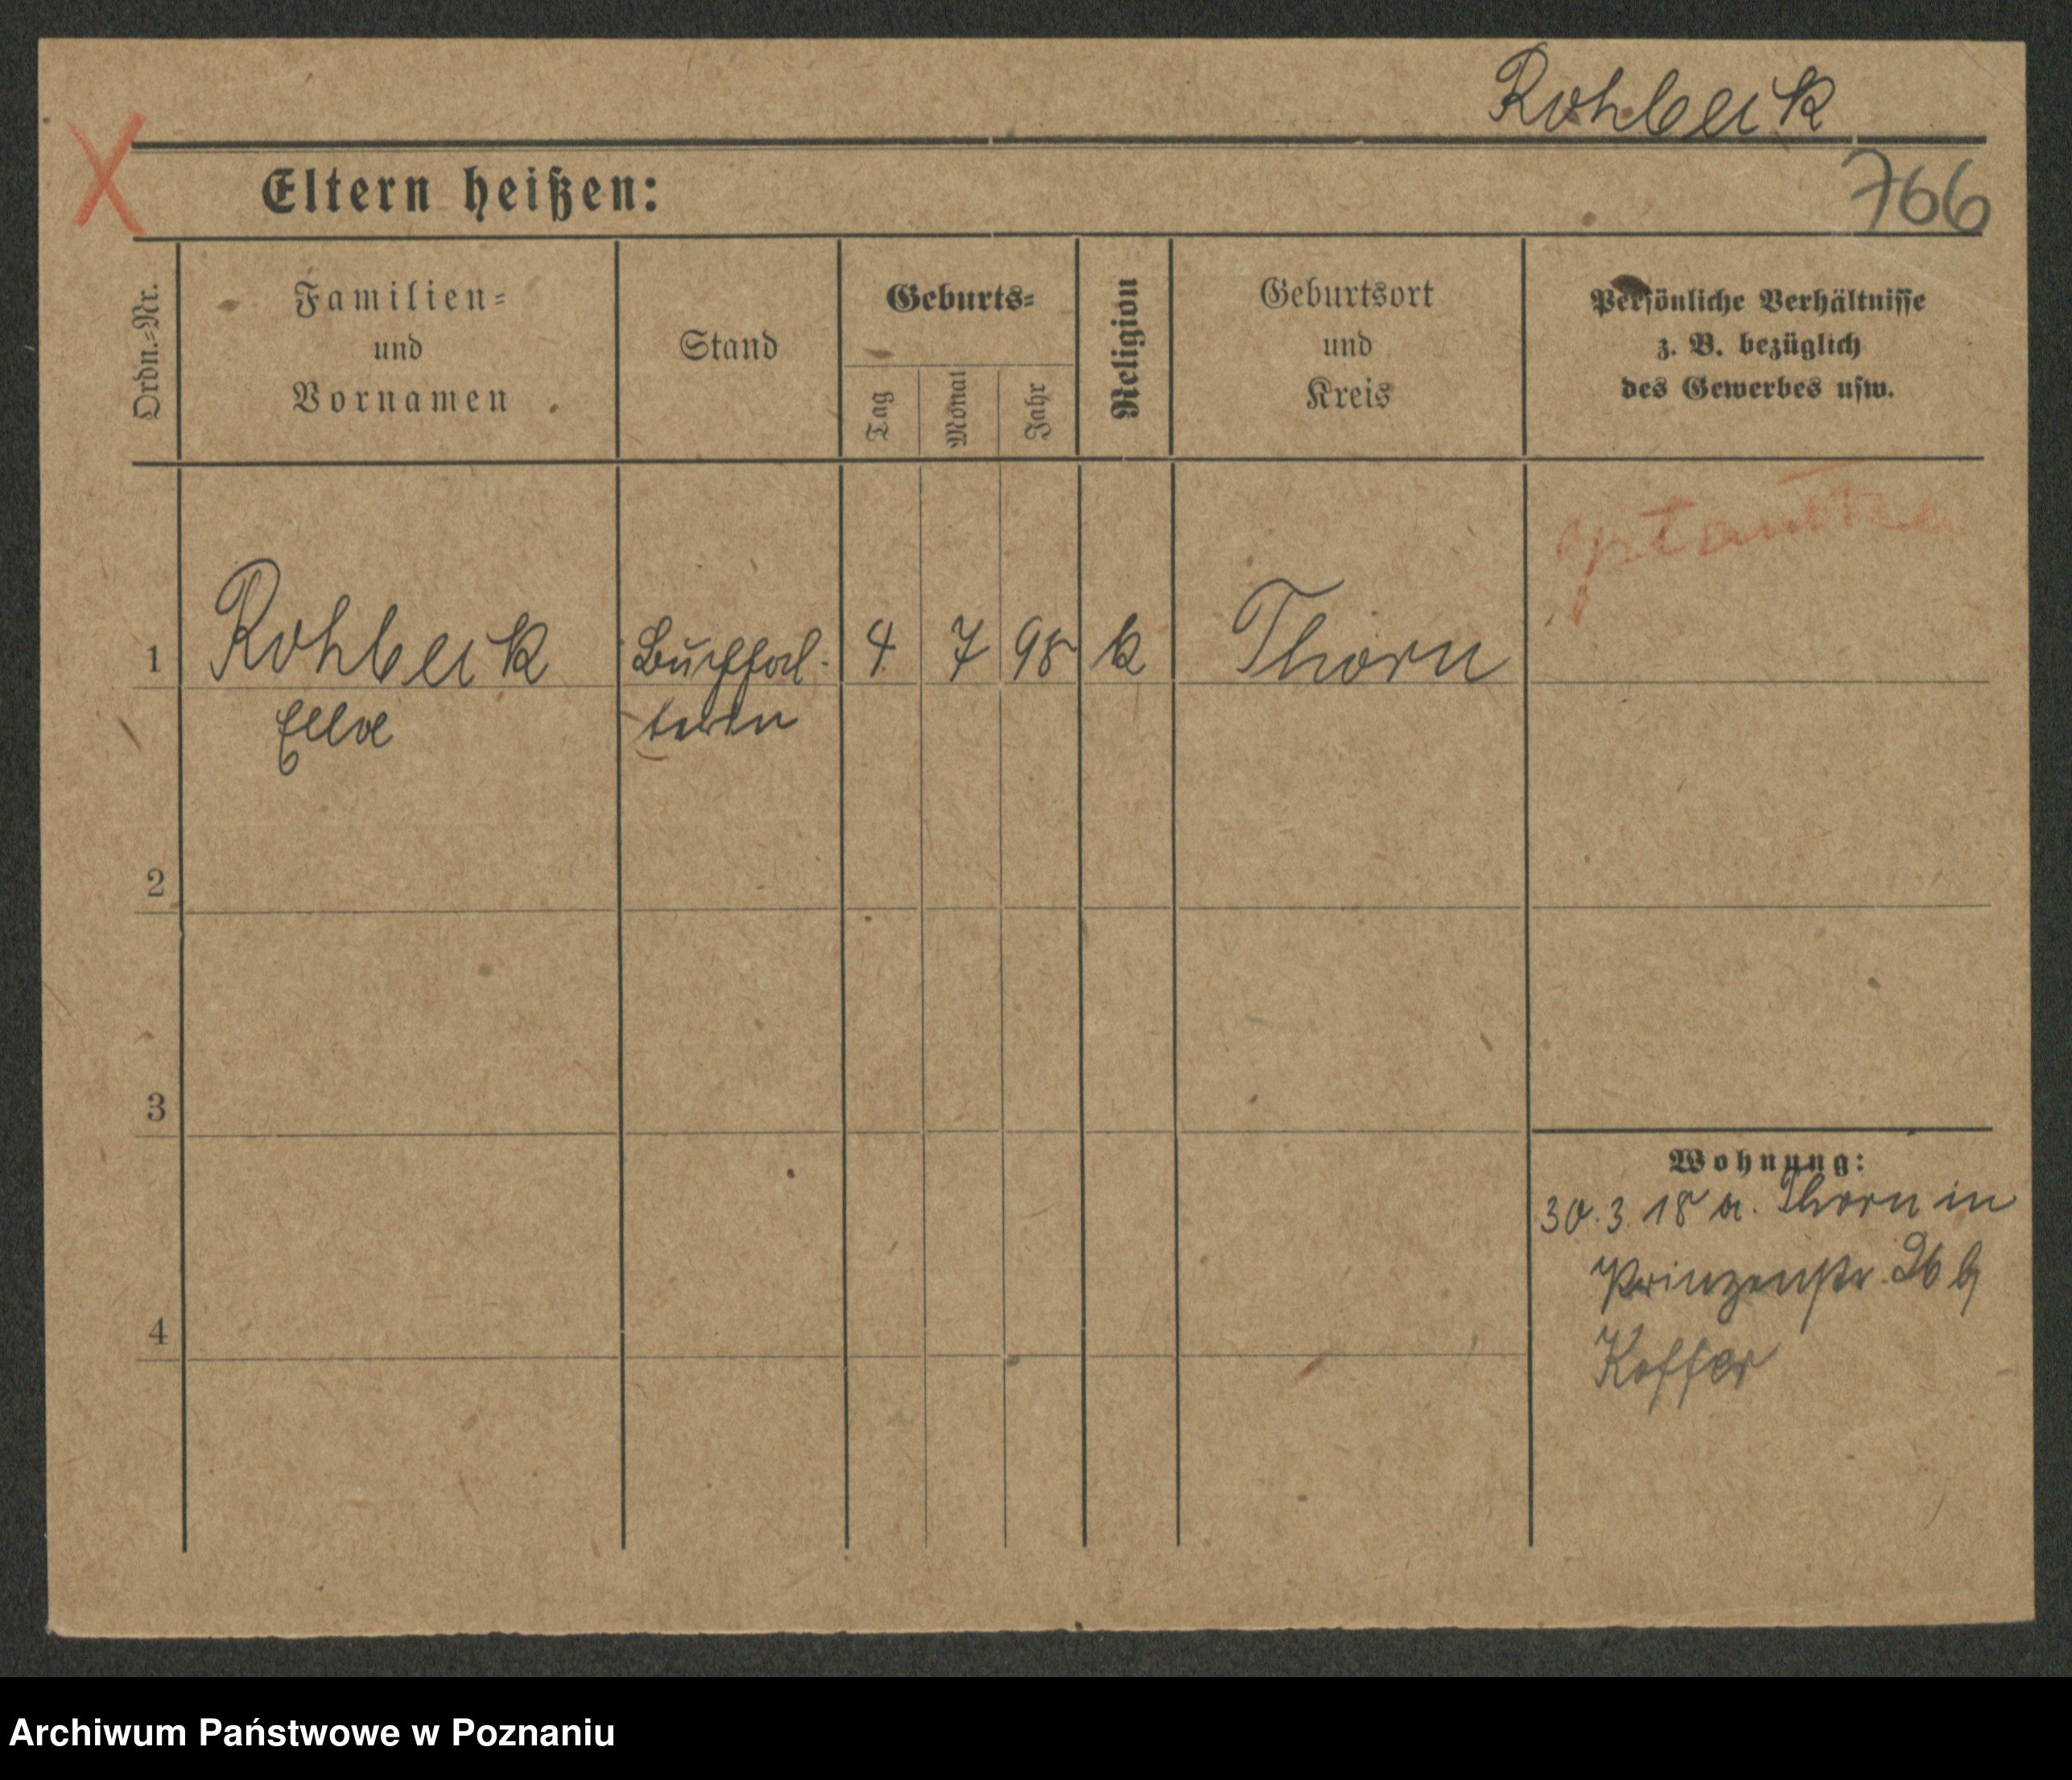 Rohbeck
X
Eltern heißen:
766
Ordn.=Nr.
Familien=
und
Vornamen
Stand
Geburts=
Tag
Monat
Jahr
Religion
Geburtsort
und
Kreis
Persönliche Verhältnisse
z. B. bezüglich
des Gewerbes usw.
1
Rohbeck
Ella
Buchhal-
terin
4. 7 98 k
Thorn
2
3
4
Wohnung:
30.3.18 a. Thorn in
Prinzenstr. 26 b
Archiwum Państwowe w Poznaniu